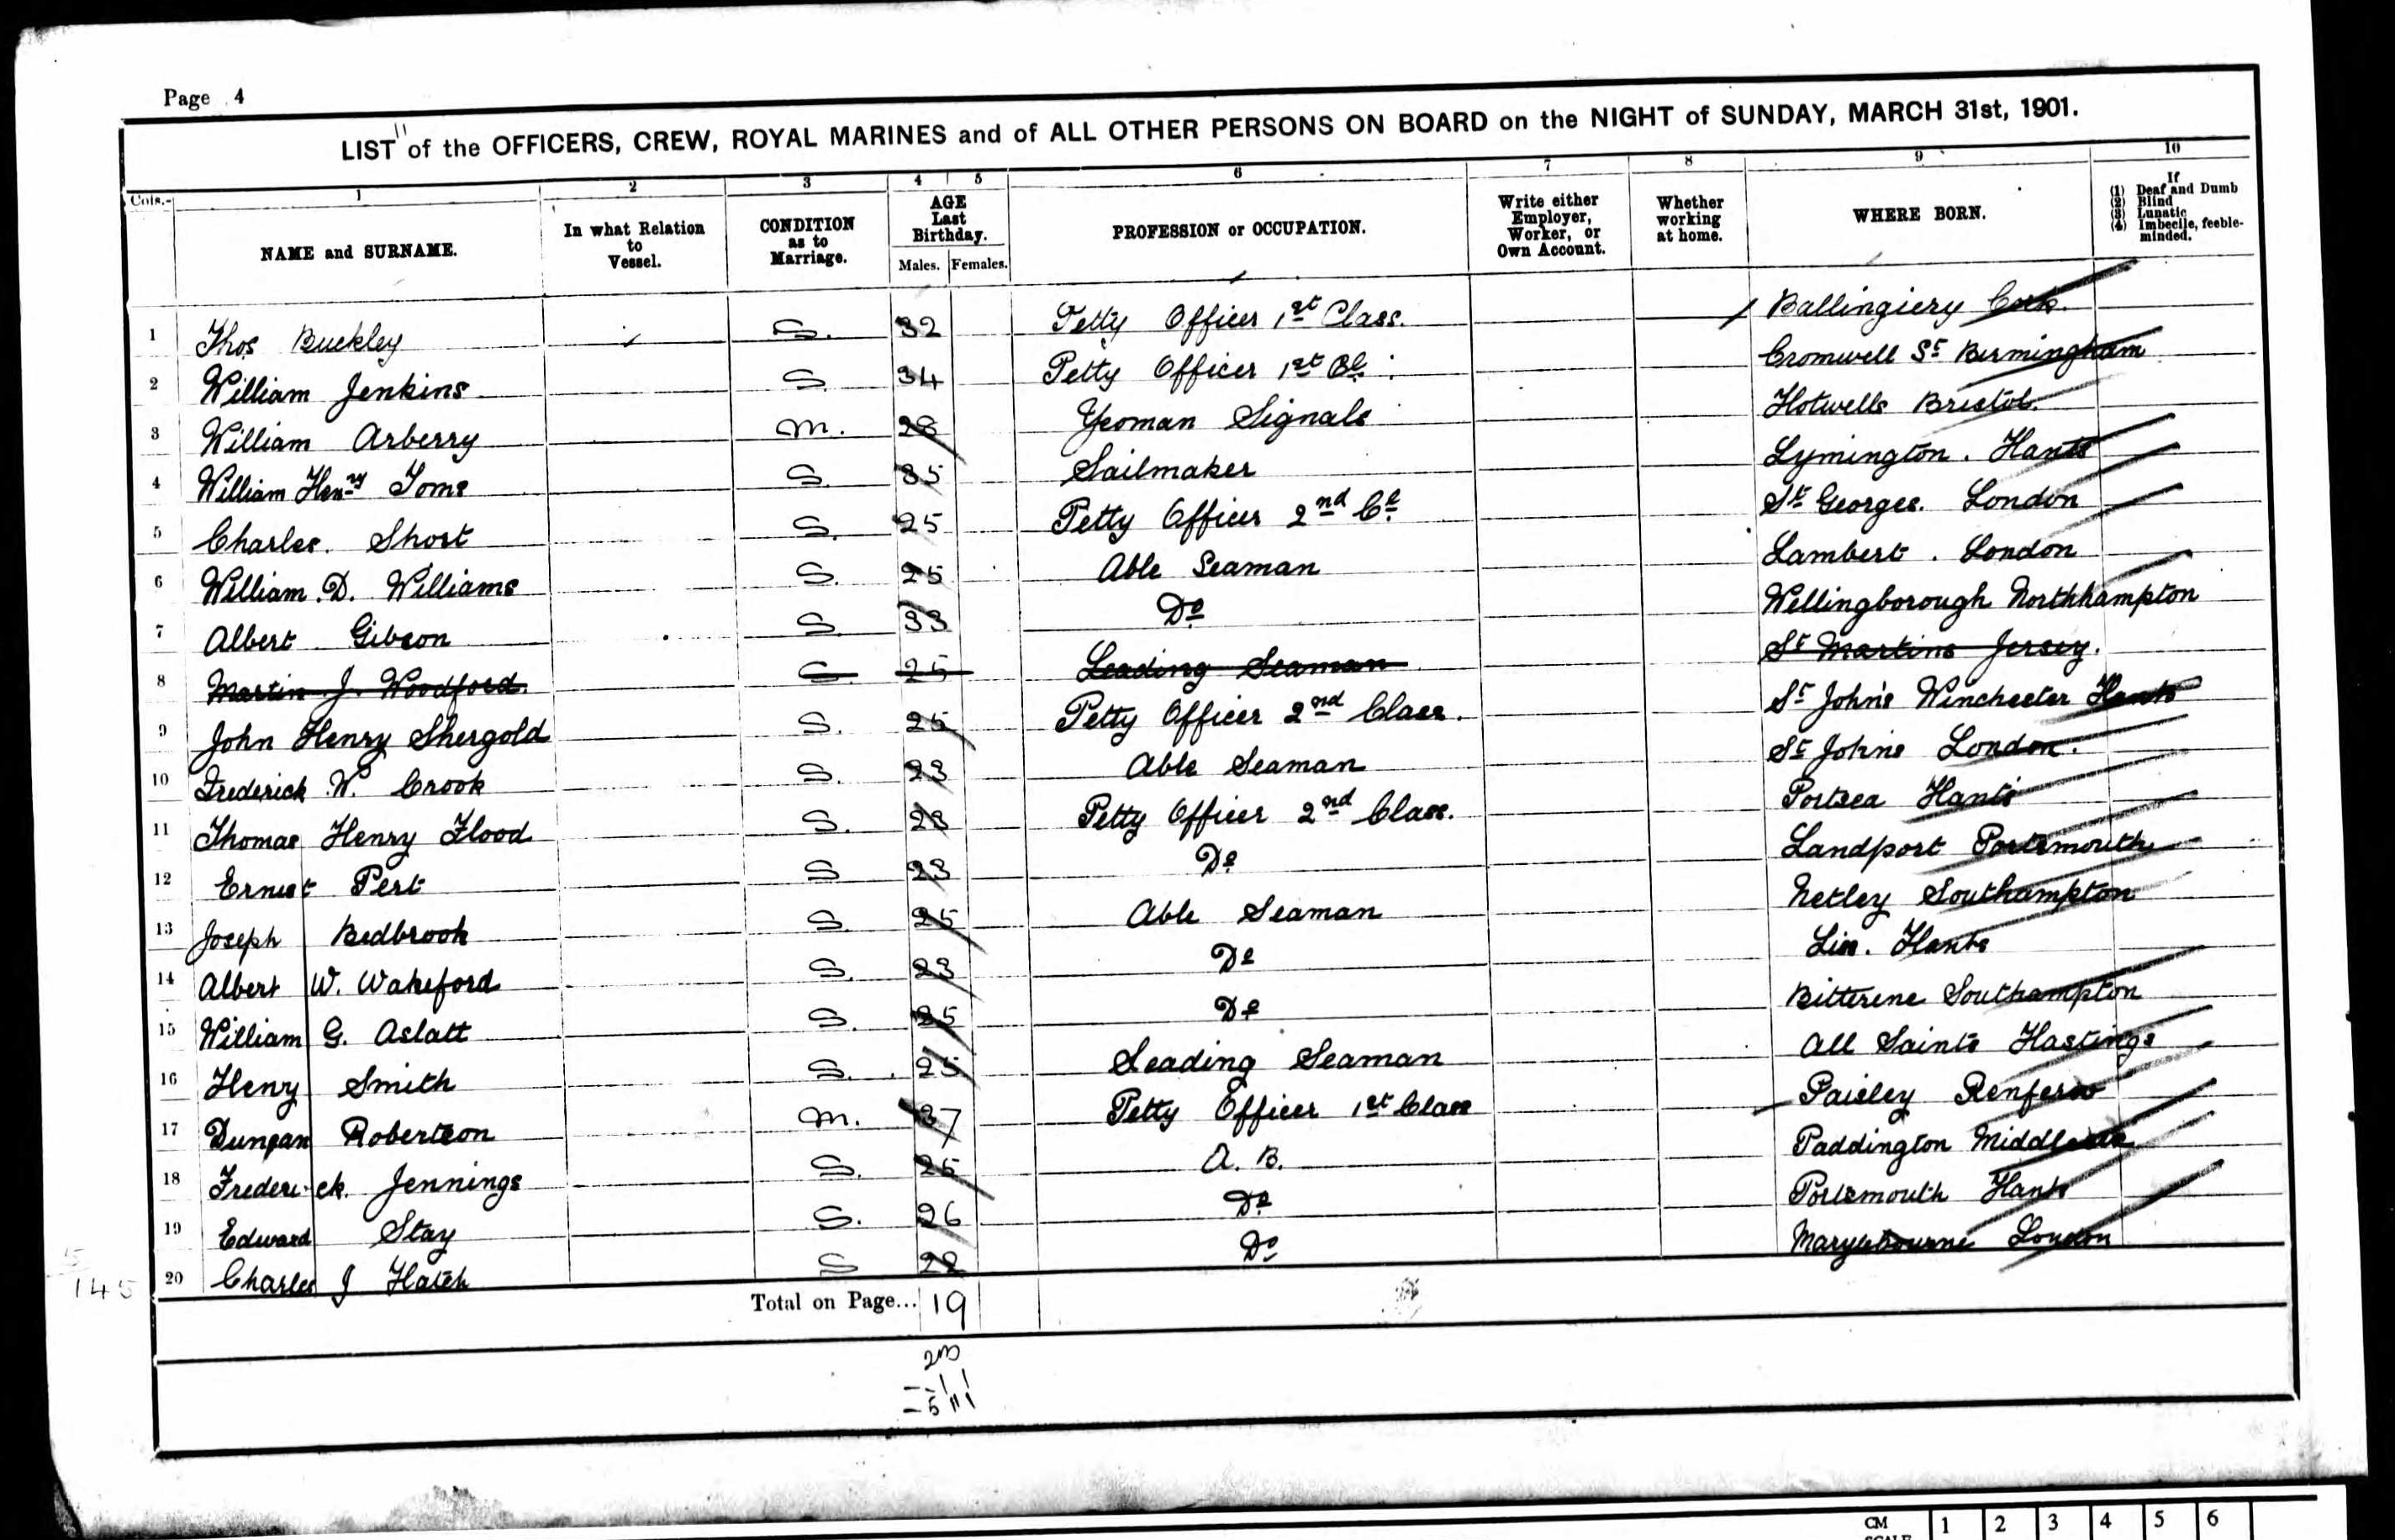 Page 4
LIST of the OFFICERS, CREW, ROYAL MARINES and of ALL OTHER PERSONS ON BOARD on the NIGHT of SUNDAY, MARCH 31st, 1901.
Cols.- 1 2 3 4 5 6 7 8 9 10
NAME and SURNAME. In what Relation to Vessel. CONDITION as to Marriage. AGE Last Birthday. Males. Females. PROFESSION or OCCUPATION. Write either Employer, Worker, or Own Account. Whether working at home. WHERE BORN. If (1) Deaf and Dumb (2) Blind (3) Lunatic (4) Imbecile, feeble-minded.
1 Thos Buckley S. 32 Petty Officer 1st Class. Ballingiery Cork.
2 William Jenkins S. 34 Petty Officer 1st Cl. Cromwell St Birmingham
3 William Arberry M. 28 Yeoman Signals Hotwells Bristol.
4 William Henry Toms S. 35 Sailmaker Lymington. Hants
5 Charles. Short S. 25 Petty Officer 2nd Cl. St Georges. London
6 William. D. Williams S. 25 Able Seaman Lambert. London
7 Albert Gibson S. 33 Do Wellingborough Northhampton
8 Martin J. Woodford. S. 25 Leading Seaman St Martins Jersey.
9 John Henry Shergold S. 25 Petty Officer 2nd Class. St John's Winchester Hants
10 Frederick W. Crook S. 23 Able Seaman St Johns London.
11 Thomas Henry Flood S. 23 Petty Officer 2nd Class. Portsea Hants
12 Ernest Pert S 23 Do Landport Portsmouth
13 Joseph Bedbrook S. 25 Able Seaman Netley Southampton
14 Albert W. Wakeford S. 23 Do Liss. Hants
15 William G. Aslatt S. 25 Do Bitterene Southampton
16 Henry Smith S. 25 Leading Seaman All Saints Hastings
17 Duncan Robertson M. 37 Petty Officer 1st Class Paisley Renferw
18 Frederick. Jennings S. 25 A. B. Paddington Middlesex
19 Edward Stay S. 26 Do Portsmouth Hants
20 Charles J Hatch S 22 Do Marylebourne London
Total on Page... 19
145
CM 1 2 3 4 5 6